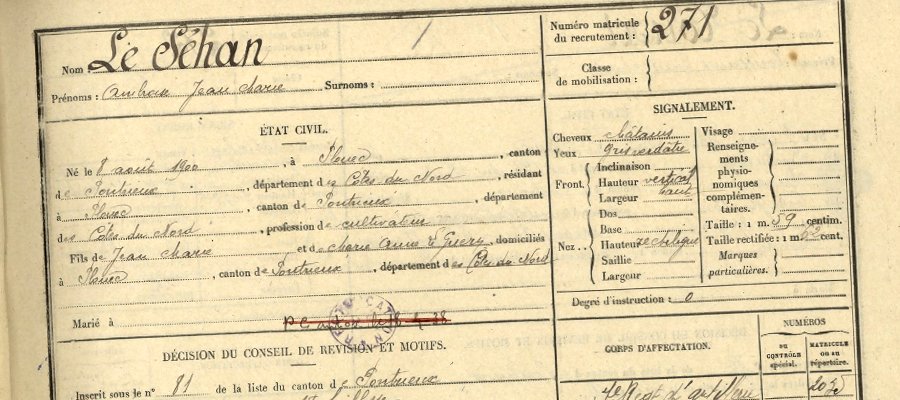 Nom : Le Séhan
1
Numéro matricule
du recrutement : 271
Prénoms : Ambrois Jean Marie Surnoms :
Classe
de mobilisation :
ÉTAT CIVIL.
Né le 8 août 1900, à Plouec, canton
de Pontrieux, département des Côtes du Nord, résidant
à Plouec, canton de Pontrieux, département
des Côtes du Nord, profession de cultivateur
Fils de Jean Marie et de Marie Anne, domiciliés
à Plouec, canton de Pontrieux, département des Côtes du Nord
Marié à
SIGNALEMENT.
Cheveux châtains
Yeux gris verdâtre
Front.
Inclinaison
Hauteur vertical
Largeur haut
Nez.
Dos
Base
Hauteur
Saillie
Largeur
Visage
Renseigne-
ments
physio-
nomiques
complémen-
taires.
Taille : 1 m. 59 centim.
Taille rectifiée : 1 m. cent.
Marques
particulières.
Degré d'instruction : 0
DÉCISION DU CONSEIL DE REVISION ET MOTIFS.
Inscrit sous le n° 81 de la liste du canton de Pontrieux
CORPS D'AFFECTATION.
NUMÉROS
DU
CONTRÔLE
spécial.
MATRICULE
OU AU
répertoire.
Regt d'artillerie